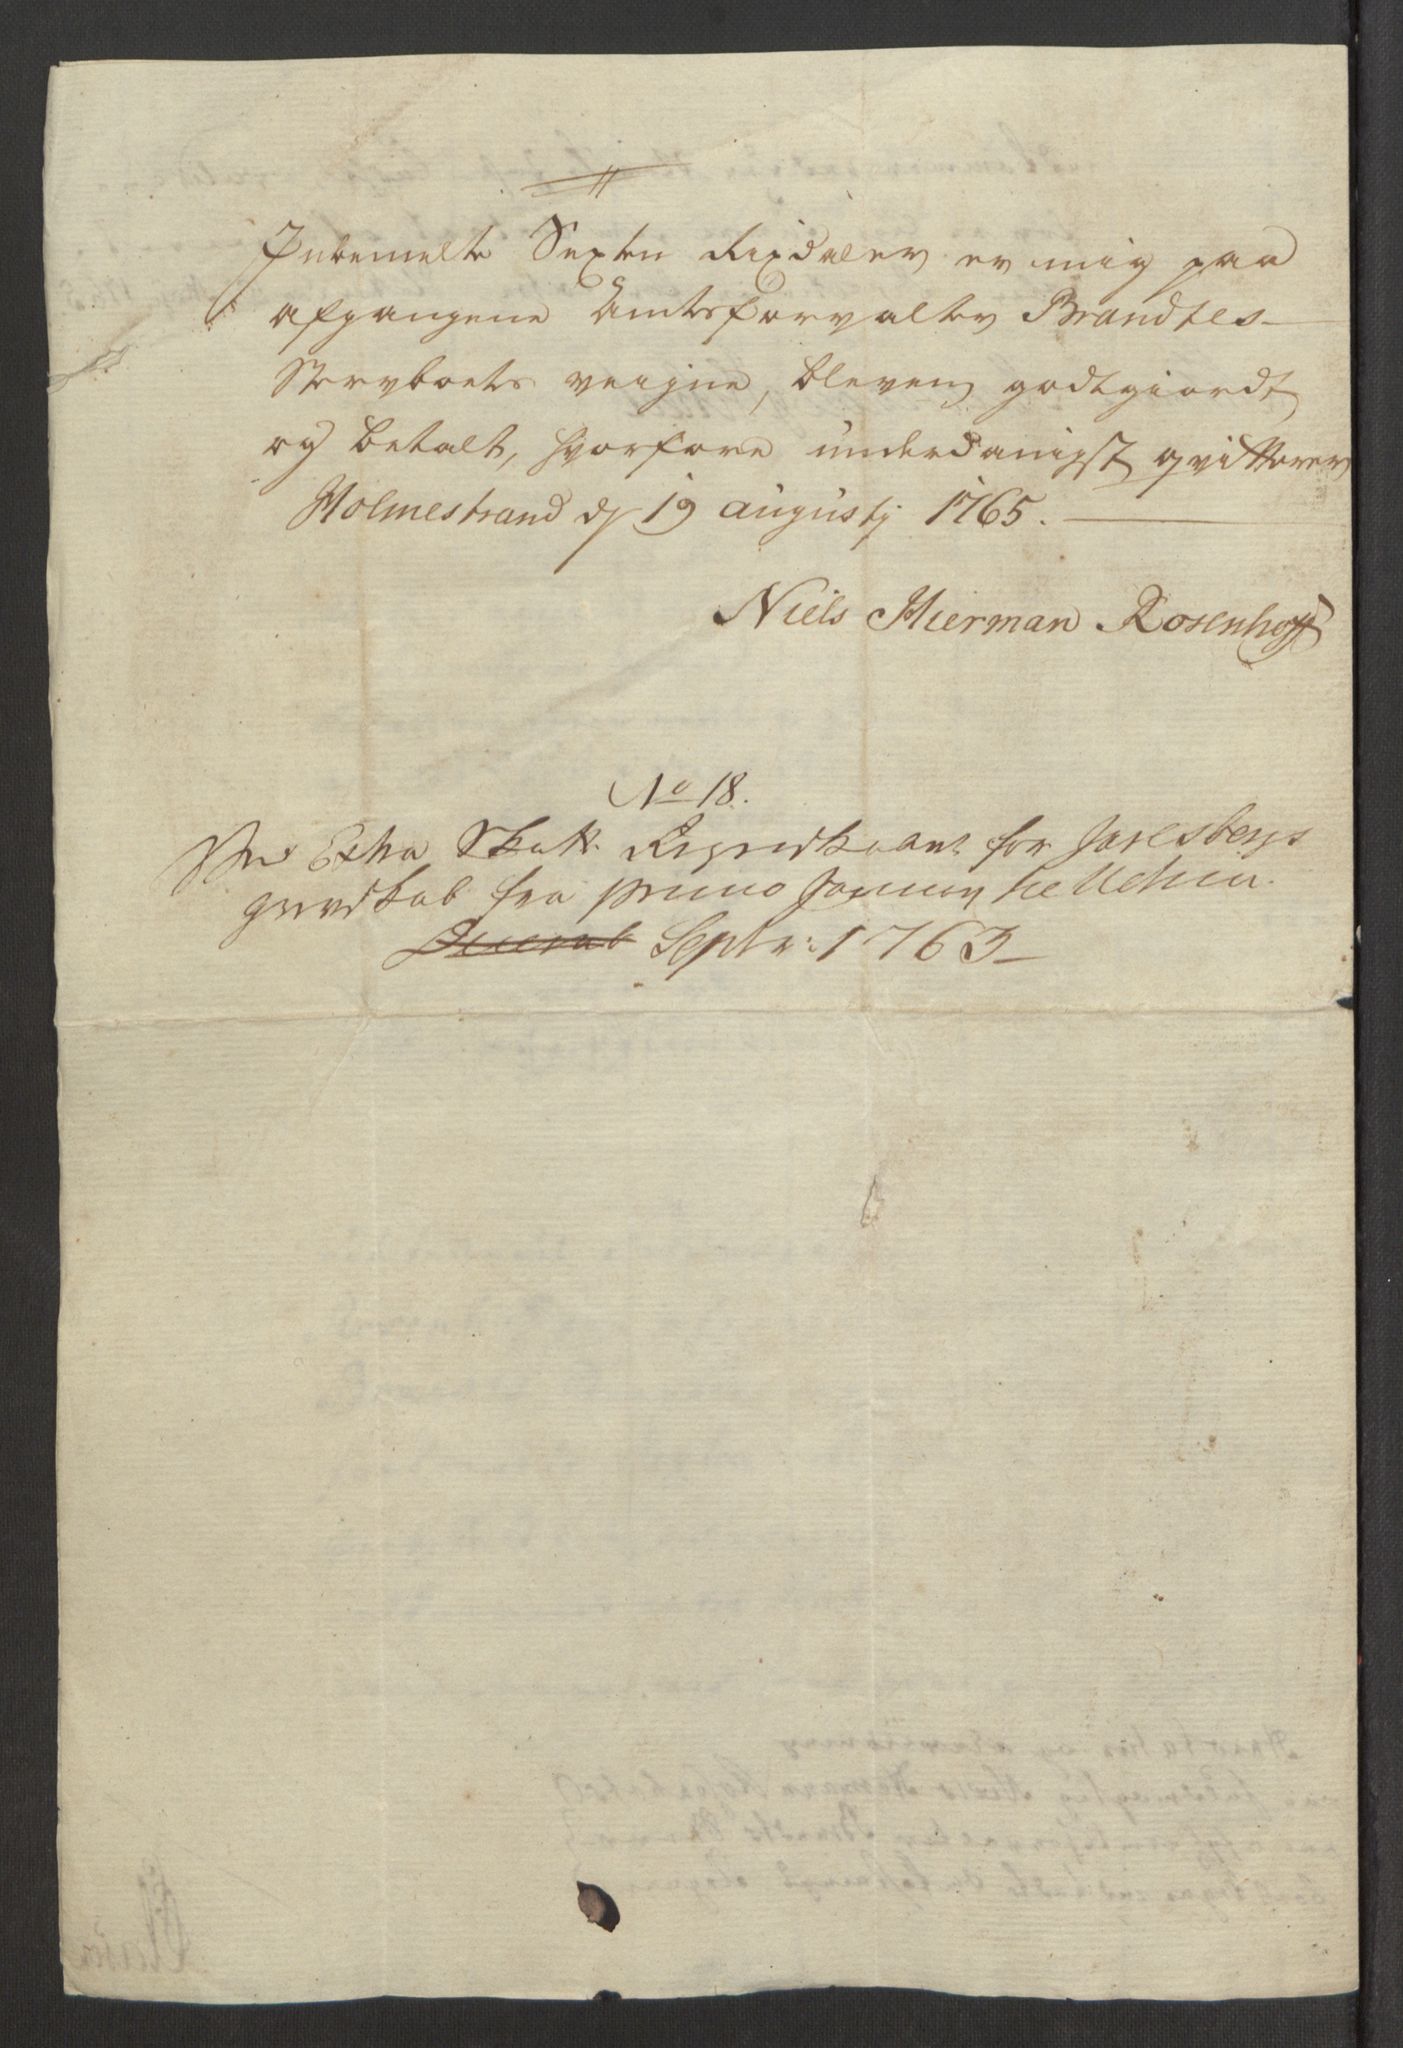 Inbemelte Sexten Rixdaler er mig paa
afgangene Amtsforvalter Brandtes
Stervboets veigne, bleven godtgiordt
og betalt, hvorfore underdanigst qvitterer
Holmestrand d 19 augustj 1765.
Niels Hierman Rosenhoff
No 18.
Extra Skatt Regnskabet for Jarlsbergs
grevskab fra primo January til Ultim.
Decemb Septr: 1763